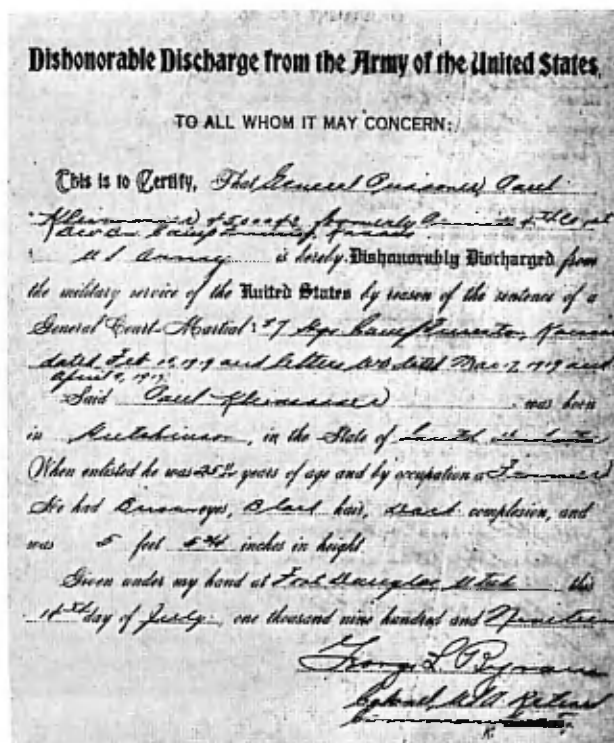 Dishonorable Discharge from the Army of the United States,
TO ALL WHOM IT MAY CONCERN:
This is to Certify, That General Prisoner, Paul
formerly
U S Army is hereby Dishonorably Discharged from
the military service of the United States by reason of the sentence of a
General Court-Martial: #7 Camp
dated Feb 1919 and letters dated Mar 7, 1919 and
April 9, 1919
Said Paul was born
in Hutchinson, in the State of South
When enlisted he was 25 years of age and by occupation a Farmer
He had Brown eyes, Black hair, Dark complexion, and
was 5 feet inches in height.
Given under my hand at Fort Douglas Utah this
day of July, one thousand nine hundred and Nineteen
George L.
Colonel, Retired